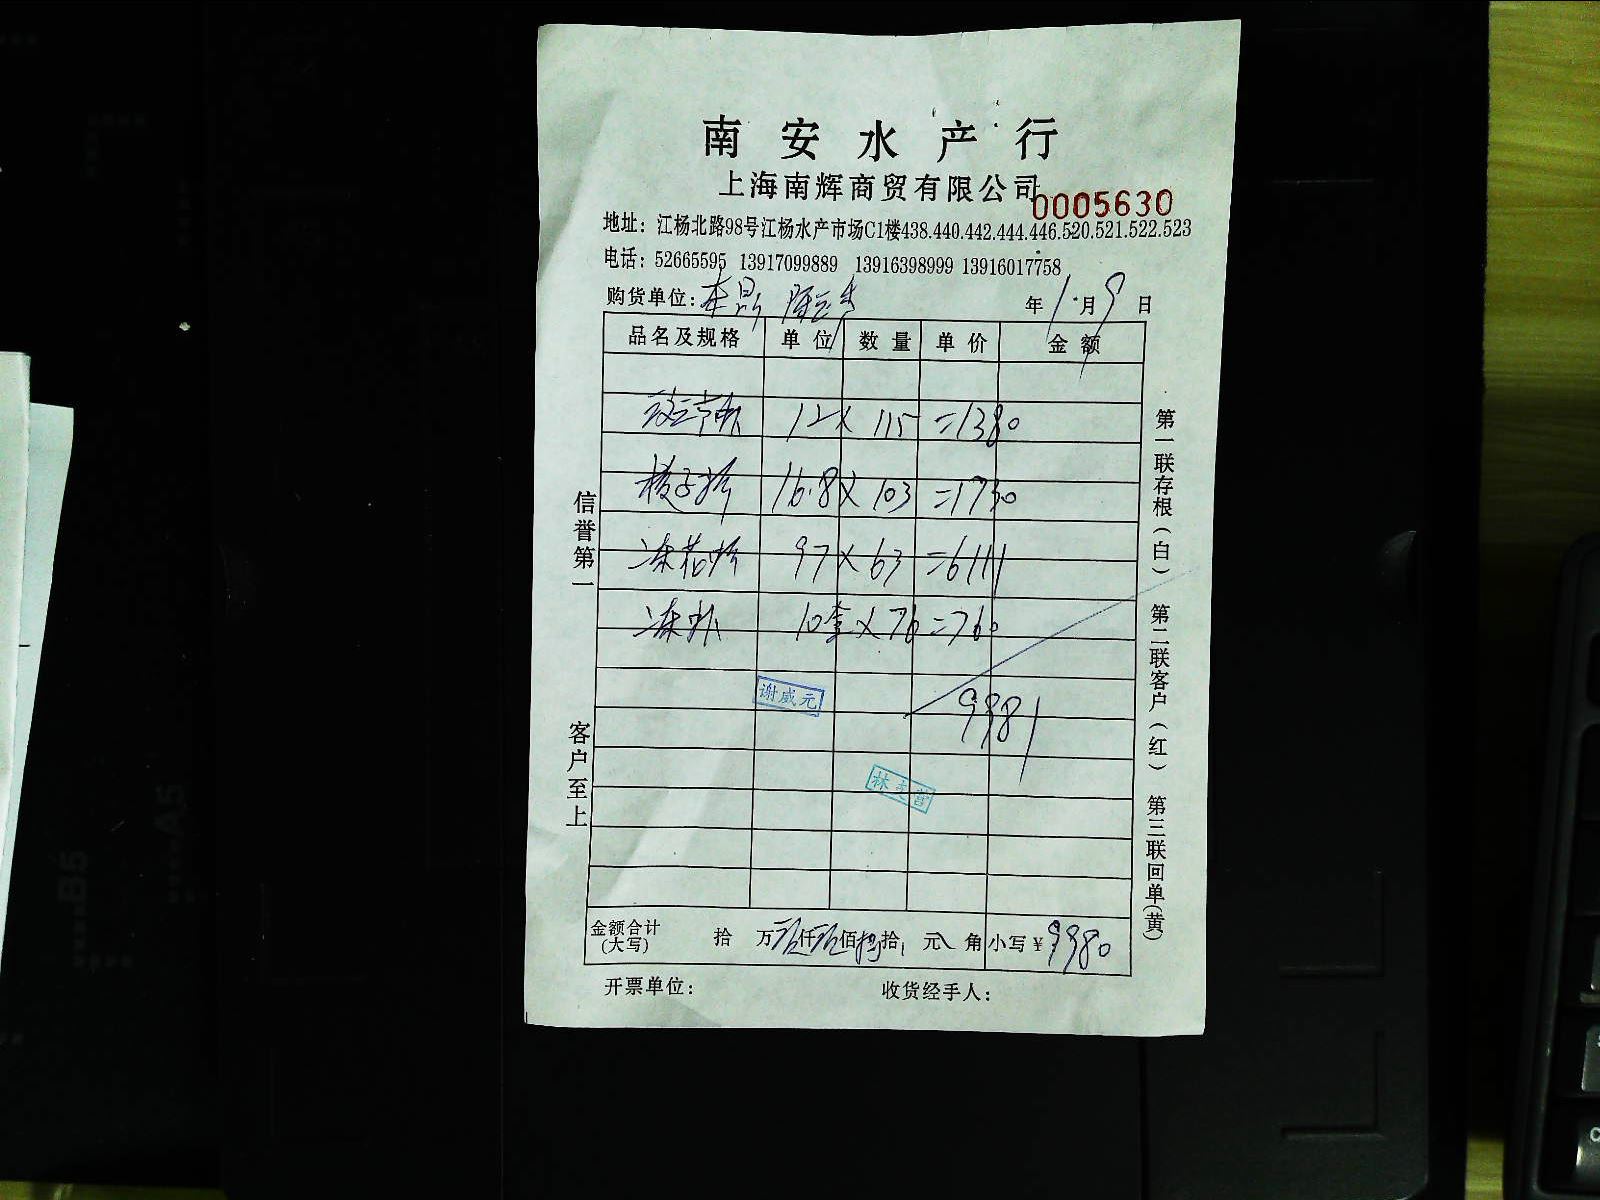 南安水产行
上海南辉商贸有限公司
0005630
地址：江杨北路98号江杨水产市场C1楼438.440.442.444.446.520.521.522.523
电话：52665595 13917099889 13916398999 13916017758
购货单位：
年 1 月 9 日
品名及规格 单位 数量 单价 金额
12 × 115 =1380
16.8 × 103 =1730
冻花蚧 97 × 63 =6111
冻 10 × 76 =760
9981
谢威元
金额合计（大写） 拾 万玖仟玖佰捌拾 元 角 小写￥9980
开票单位： 收货经手人：
信誉第一 客户至上
第一联存根（白） 第二联客户（红） 第三联回单（黄）
B5
A5